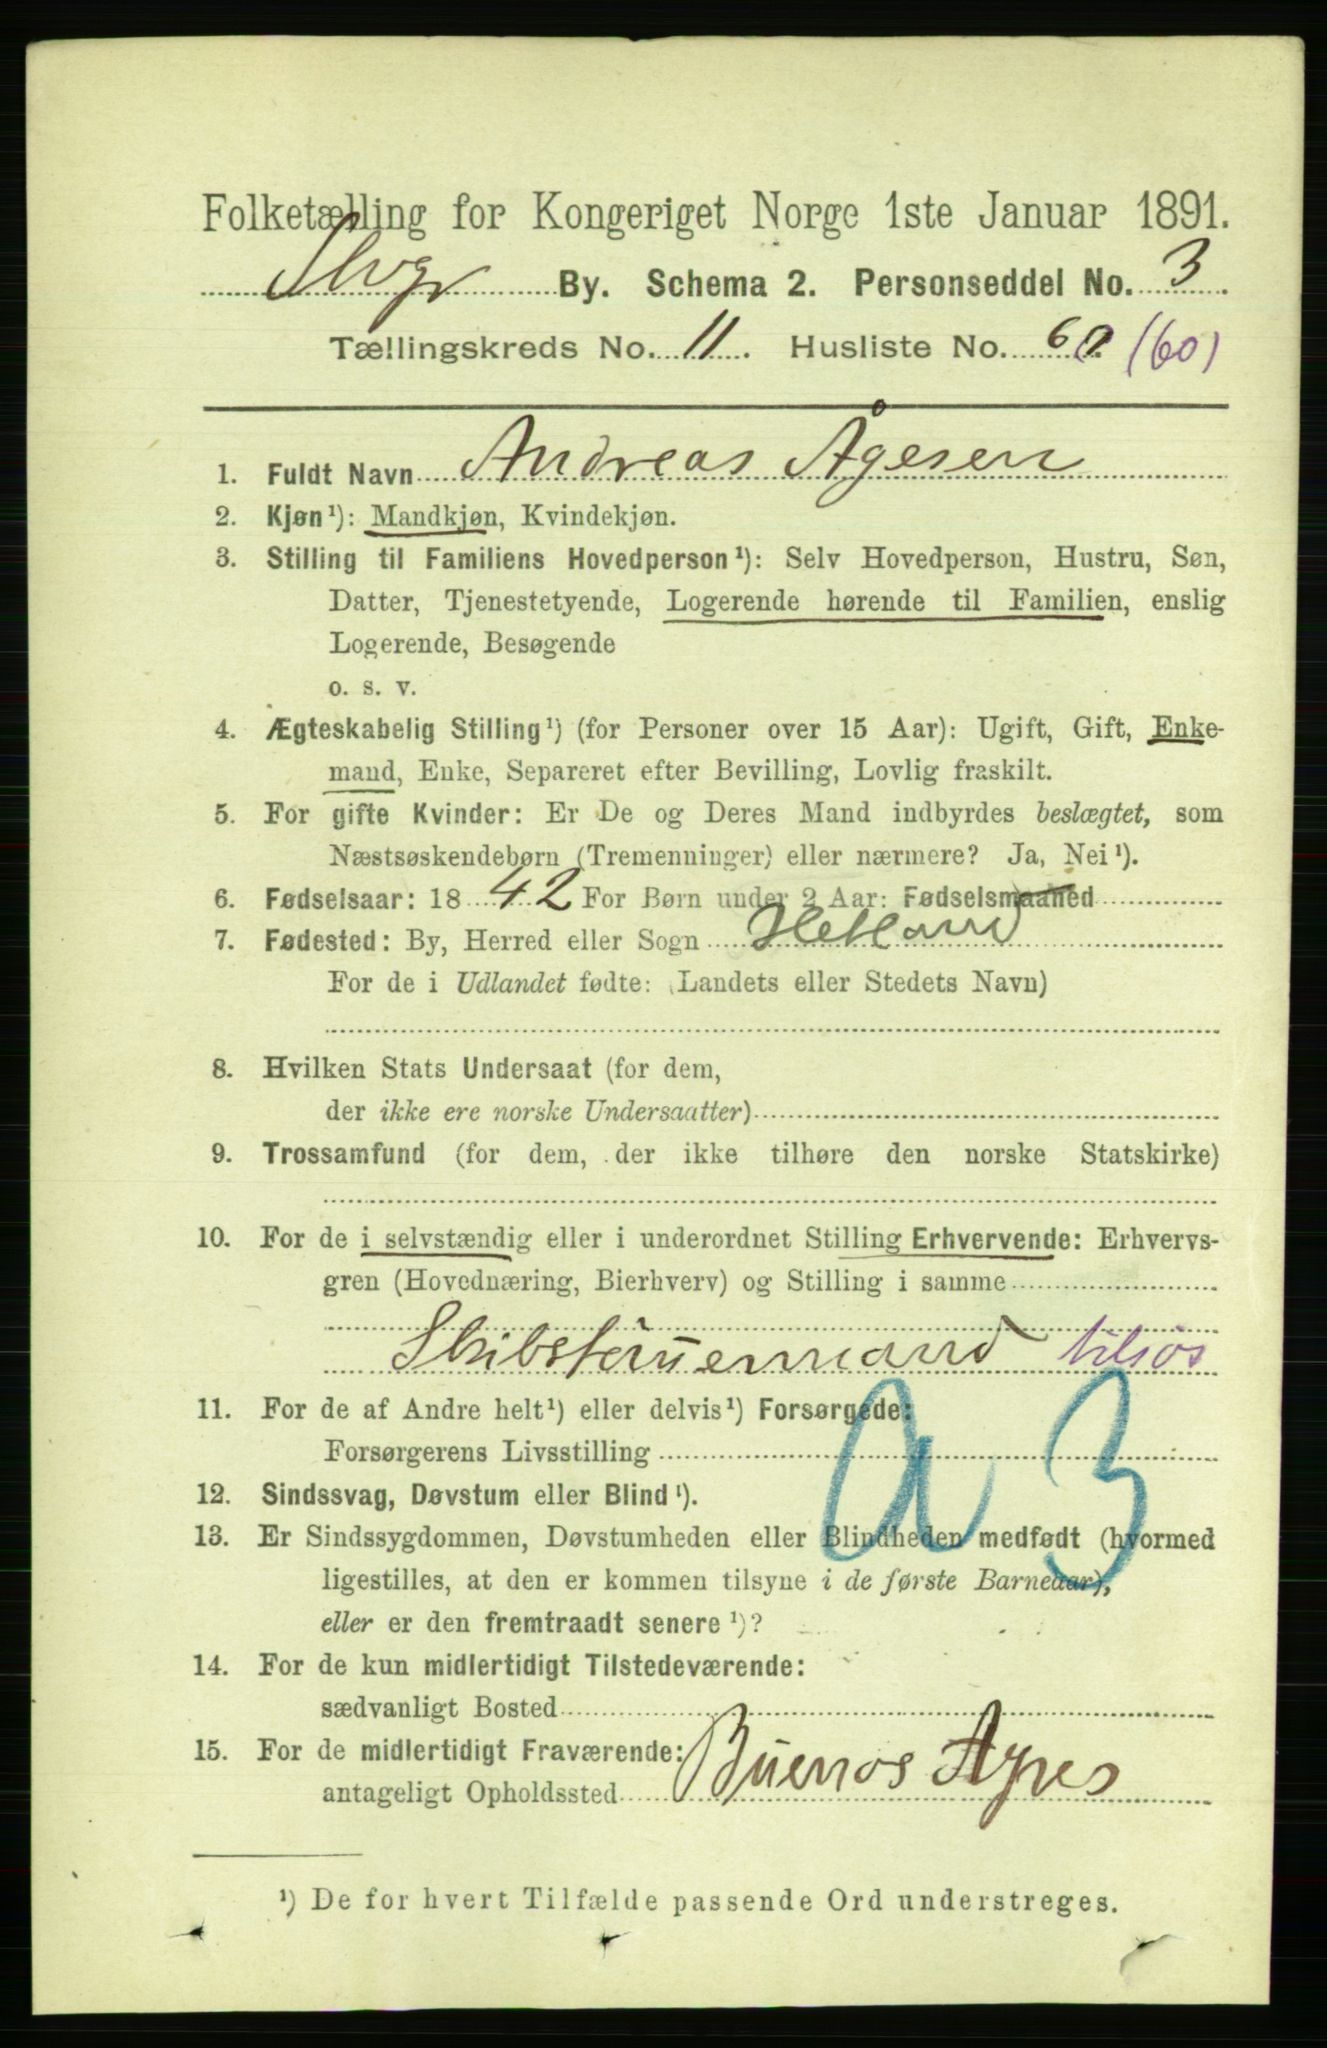 Folketælling for Kongeriget Norge 1ste Januar 1891.
Stvgr By. Schema 2. Personseddel No. 3.
Tællingskreds No. 11. Husliste No. 60 (60)
1. Fuldt Navn Andreas Ågesen
2. Kjøn¹): Mandkjøn, Kvindekjøn.
3. Stilling til Familiens Hovedperson¹): Selv Hovedperson, Hustru, Søn,
Datter, Tjenestetyende, Logerende hørende til Familien, enslig
Logerende, Besøgende
o. s. v.
4. Ægteskabelig Stilling¹) (for Personer over 15 Aar): Ugift, Gift, Enke-
mand, Enke, Separeret efter Bevilling, Lovlig fraskilt.
5. For gifte Kvinder: Er De og Deres Mand indbyrdes beslægtet, som
Næstsøskendebørn (Tremenninger) eller nærmere? Ja, Nei¹).
6. Fødselsaar: 18 42 For Børn under 2 Aar: Fødselsmaaned
7. Fødested: By, Herred eller Sogn Hetland
For de i Udlandet fødte: (Landets eller Stedets Navn)
8. Hvilken Stats Undersaat (for dem,
der ikke ere norske Undersaatter)
9. Trossamfund (for dem, der ikke tilhøre den norske Statskirke)
10. For de i selvstændig eller i underordnet Stilling Erhvervende: Erhvervs-
gren (Hovednæring, Bierhverv) og Stilling i samme
Skibstømmermand tilsøs
11. For de af Andre helt¹) eller delvis¹) Forsørgede:
Forsørgerens Livsstilling
a 3
12. Sindssvag, Døvstum eller Blind¹).
13. Er Sindssygdommen, Døvstumheden eller Blindheden medfødt (hvormed
ligestilles, at den er kommen tilsyne i de første Barneaar),
eller er den fremtraadt senere¹)?
14. For de kun midlertidigt Tilstedeværende:
sædvanligt Bosted
15. For de midlertidigt Fraværende:
antageligt Opholdssted Buenos Ayres
¹) De for hvert Tilfælde passende Ord understreges.